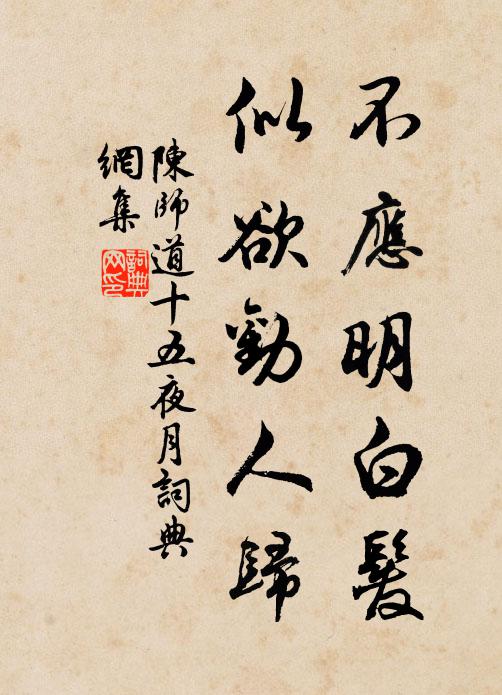 不應明白髮
似欲勸人歸
陳師道十五夜月詞典
網集
詞典
网印